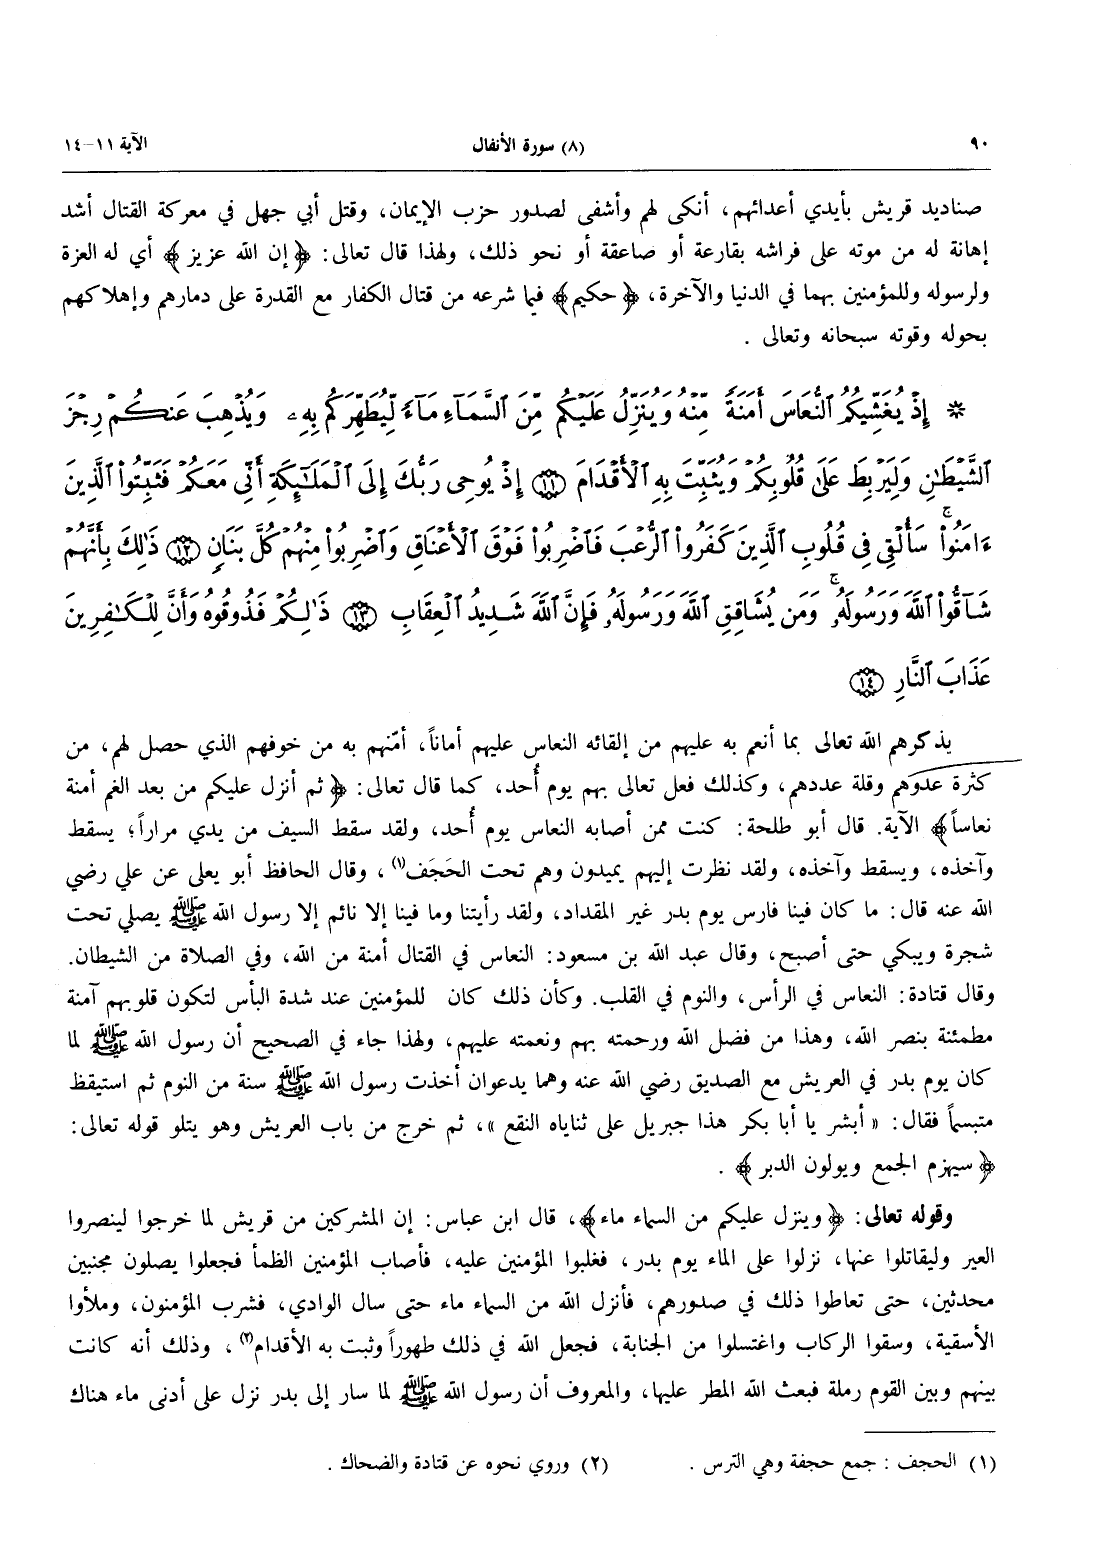 ٩٠ (٨) سورة الأنفال الآية ١١-١٤
صناديد قريش بأيدي أعدائهم، أنكى لهم وأشفى لصدور حزب الإيمان، وقتل أبي جهل في معركة القتال أشد
إهانة له من موته على فراشه بقارعة أو صاعقة أو نحو ذلك، ولهذا قال تعالى: ﴿إن الله عزيز﴾ أي له العزة
ولرسوله وللمؤمنين بهما في الدنيا والآخرة، ﴿حكيم﴾ فيما شرعه من قتال الكفار مع القدرة على دمارهم وإهلاكهم
بحوله وقوته سبحانه وتعالى .
۞ إِذْ يُغَشِّيكُمُ ٱلنُّعَاسَ أَمَنَةً مِّنْهُ وَيُنَزِّلُ عَلَيْكُم مِّنَ ٱلسَّمَآءِ مَآءً لِّيُطَهِّرَكُم بِهِۦ وَيُذْهِبَ عَنكُمْ رِجْزَ
ٱلشَّيْطَٰنِ وَلِيَرْبِطَ عَلَىٰ قُلُوبِكُمْ وَيُثَبِّتَ بِهِ ٱلْأَقْدَامَ ١١ إِذْ يُوحِى رَبُّكَ إِلَى ٱلْمَلَٰٓئِكَةِ أَنِّى مَعَكُمْ فَثَبِّتُوا۟ ٱلَّذِينَ
ءَامَنُوا۟ ۚ سَأُلْقِى فِى قُلُوبِ ٱلَّذِينَ كَفَرُوا۟ ٱلرُّعْبَ فَٱضْرِبُوا۟ فَوْقَ ٱلْأَعْنَاقِ وَٱضْرِبُوا۟ مِنْهُمْ كُلَّ بَنَانٍ ١٢ ذَٰلِكَ بِأَنَّهُمْ
شَآقُّوا۟ ٱللَّهَ وَرَسُولَهُۥ ۚ وَمَن يُشَاقِقِ ٱللَّهَ وَرَسُولَهُۥ فَإِنَّ ٱللَّهَ شَدِيدُ ٱلْعِقَابِ ١٣ ذَٰلِكُمْ فَذُوقُوهُ وَأَنَّ لِلْكَٰفِرِينَ
عَذَابَ ٱلنَّارِ ١٤
يذكرهم الله تعالى بما أنعم به عليهم من إلقائه النعاس عليهم أماناً، أمّنهم به من خوفهم الذي حصل لهم، من
كثرة عدوهم وقلة عددهم، وكذلك فعل تعالى بهم يوم أُحد، كما قال تعالى: ﴿ثم أنزل عليكم من بعد الغم أمنة
نعاساً﴾ الآية. قال أبو طلحة: كنت ممن أصابه النعاس يوم أُحد، ولقد سقط السيف من يدي مراراً؛ يسقط
وآخذه، ويسقط وآخذه، ولقد نظرت إليهم يميدون وهم تحت الحَجَف(١) ، وقال الحافظ أبو يعلى عن علي رضي
الله عنه قال: ما كان فينا فارس يوم بدر غير المقداد، ولقد رأيتنا وما فينا إلا نائم إلا رسول الله ﷺ يصلي تحت
شجرة ويبكي حتى أصبح، وقال عبد الله بن مسعود: النعاس في القتال أمنة من الله، وفي الصلاة من الشيطان.
وقال قتادة: النعاس في الرأس، والنوم في القلب. وكأن ذلك كان للمؤمنين عند شدة البأس لتكون قلوبهم آمنة
مطمئنة بنصر الله، وهذا من فضل الله ورحمته بهم ونعمته عليهم، ولهذا جاء في الصحيح أن رسول الله ﷺ لما
كان يوم بدر في العريش مع الصديق رضي الله عنه وهما يدعوان أخذت رسول الله ﷺ سنة من النوم ثم استيقظ
متبسماً فقال: « أبشر يا أبا بكر هذا جبريل على ثناياه النقع »، ثم خرج من باب العريش وهو يتلو قوله تعالى:
﴿سيهزم الجمع ويولون الدبر﴾ .
وقوله تعالى: ﴿وينزل عليكم من السماء ماء﴾، قال ابن عباس: إن المشركين من قريش لما خرجوا لينصروا
العير وليقاتلوا عنها، نزلوا على الماء يوم بدر ، فغلبوا المؤمنين عليه، فأصاب المؤمنين الظمأ فجعلوا يصلون مجنبين
محدثين، حتى تعاطوا ذلك في صدورهم، فأنزل الله من السماء ماء حتى سال الوادي، فشرب المؤمنون، وملأوا
الأسقية، وسقوا الركاب واغتسلوا من الجنابة، فجعل الله في ذلك طهوراً وثبت به الأقدام(٢) ، وذلك أنه كانت
بينهم وبين القوم رملة فبعث الله المطر عليها، والمعروف أن رسول الله ﷺ لما سار إلى بدر نزل على أدنى ماء هناك
(١) الحجف : جمع حجفة وهي الترس . (٢) وروي نحوه عن قتادة والضحاك .